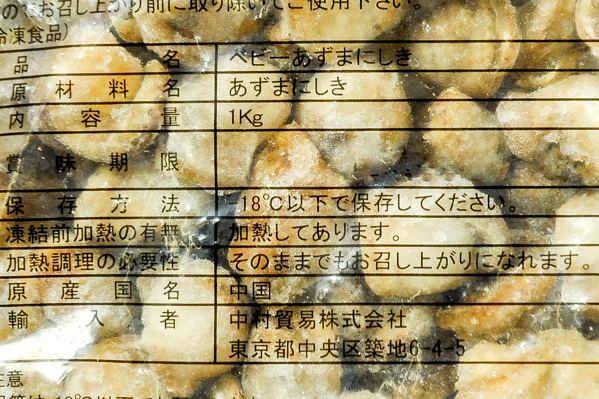 のでお召し上がり前に取り除いてご使用下さい。
冷凍食品)
品名 ベビーあずまにしき
原材料名 あずまにしき
内容量 1Kg
賞味期限
保存方法 -18℃以下で保存してください。
凍結前加熱の有無 加熱してあります。
加熱調理の必要性 そのままでもお召し上がりになれます。
原産国名 中国
輸入者 中村貿易株式会社
東京都中央区築地6-4-5
注意